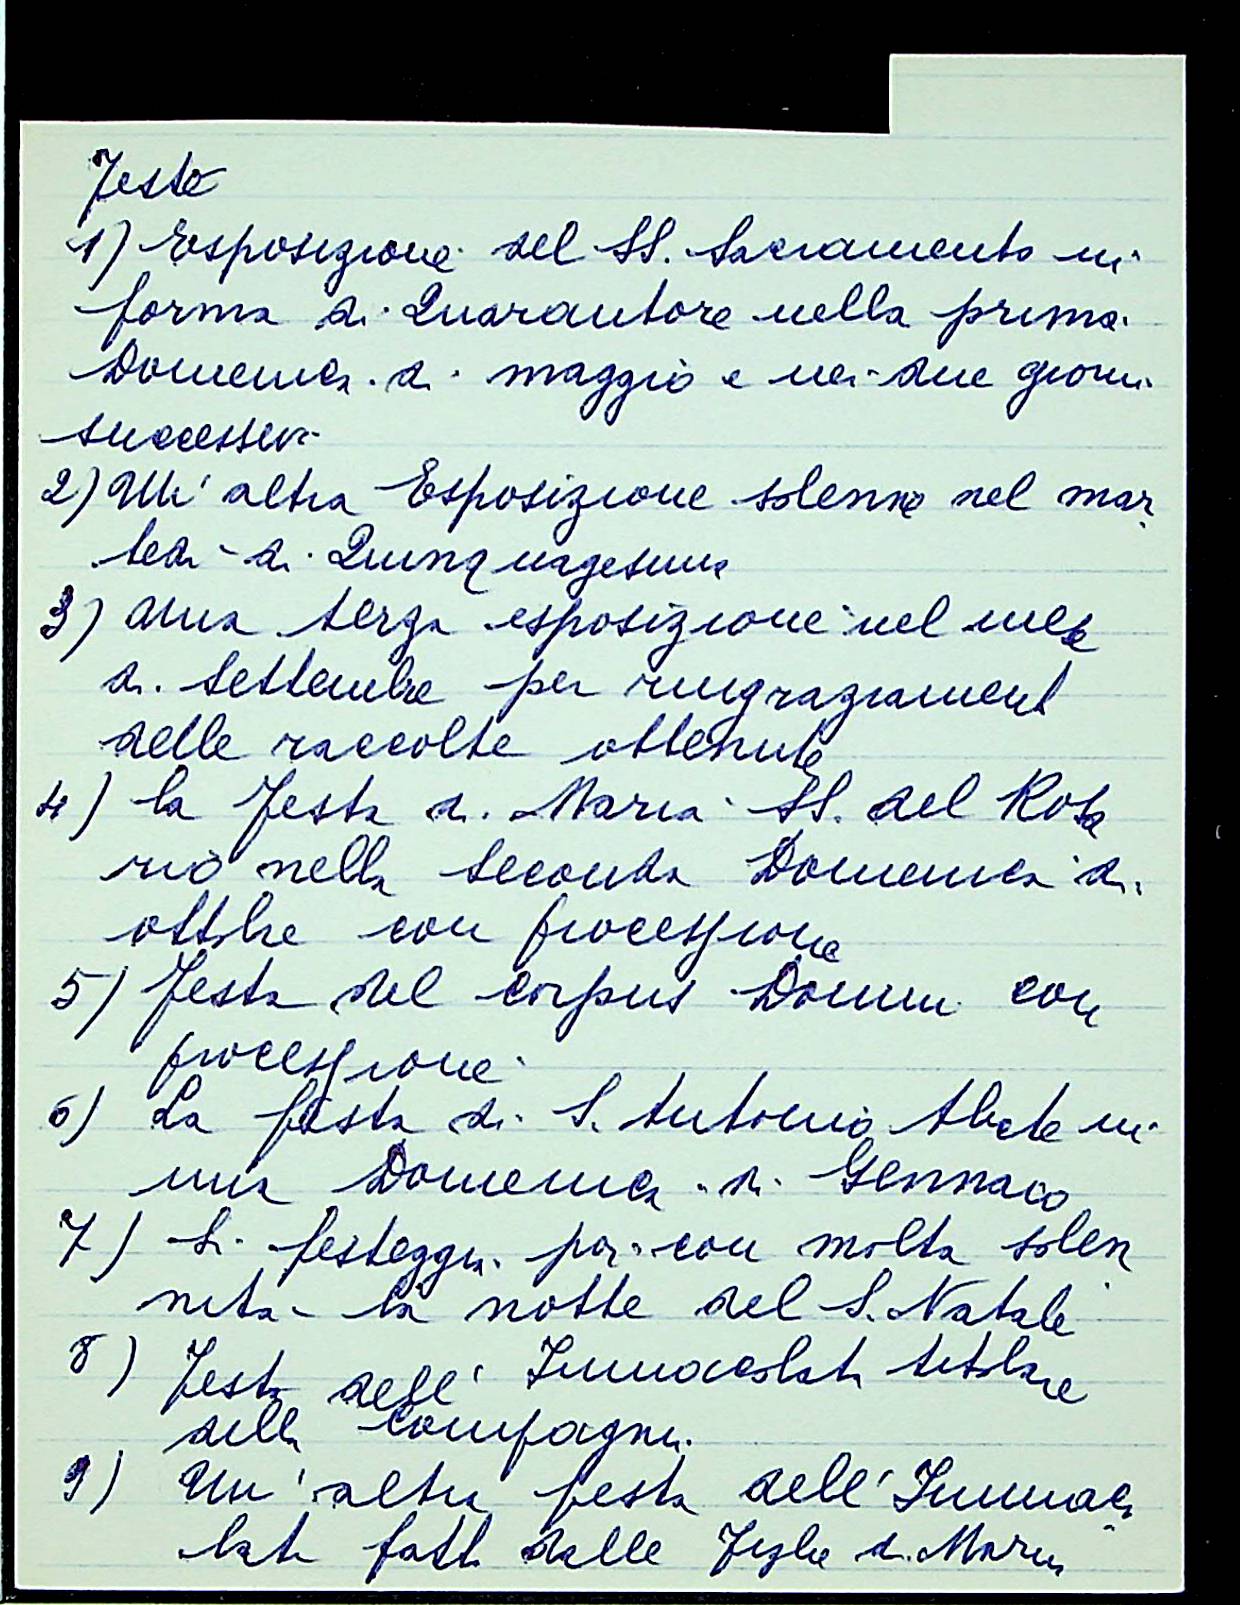 Feste
1) Esposizione del SS. Sacramento in
forma di Quarantore nella prima
Domenica di maggio e nei due giorni
successivi
2) Un' altra Esposizione solenne nel mar
tedi di Quinquagesima
3) una terza esposizione nel mese
di Settembre per ringraziament
delle raccolte ottenute
4) la festa di Maria SS. del Rosa
rio nella seconda Domenica di
ottobre con processione
5) festa del Corpus Domini con
processione
6) La festa di S. Antonio Abate in
una Domenica di Gennaio
7) Si festeggia poi con molta solen
nità la notte del S. Natale
8) Festa dell' Immacolata titolare
della Compagnia
9) Un' altra festa dell' Immaco
lata fatta dalle Figlie di Maria